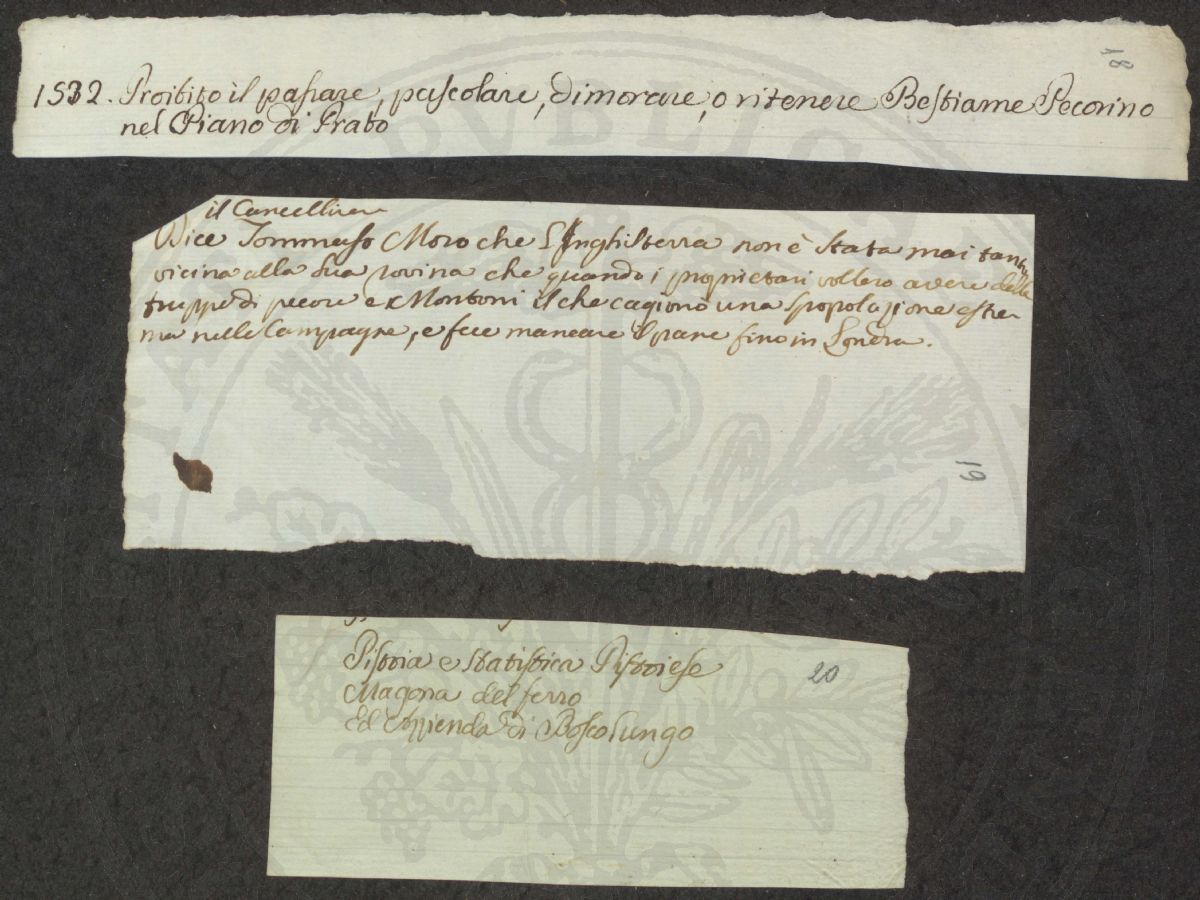 18
1532. Proibito il passare, pascolare, dimorare, o ritenere Bestiame Pecorino
nel Piano di Prato
il Cancelliere
Dice Tommaso Moro che l'Inghilterra non è stata mai tanto
vicina alla sua rovina che quando i proprietari vollero avere delle
truppe di pecore e Montoni il che cagionò una spopolazione estre
ma nelle Campagne, e fece mancare il pane fino in Londra.
19
Pistoia e statistica Pistoiese
20
Magona del ferro
Ed Azzienda di Boscolungo
PVBLICA